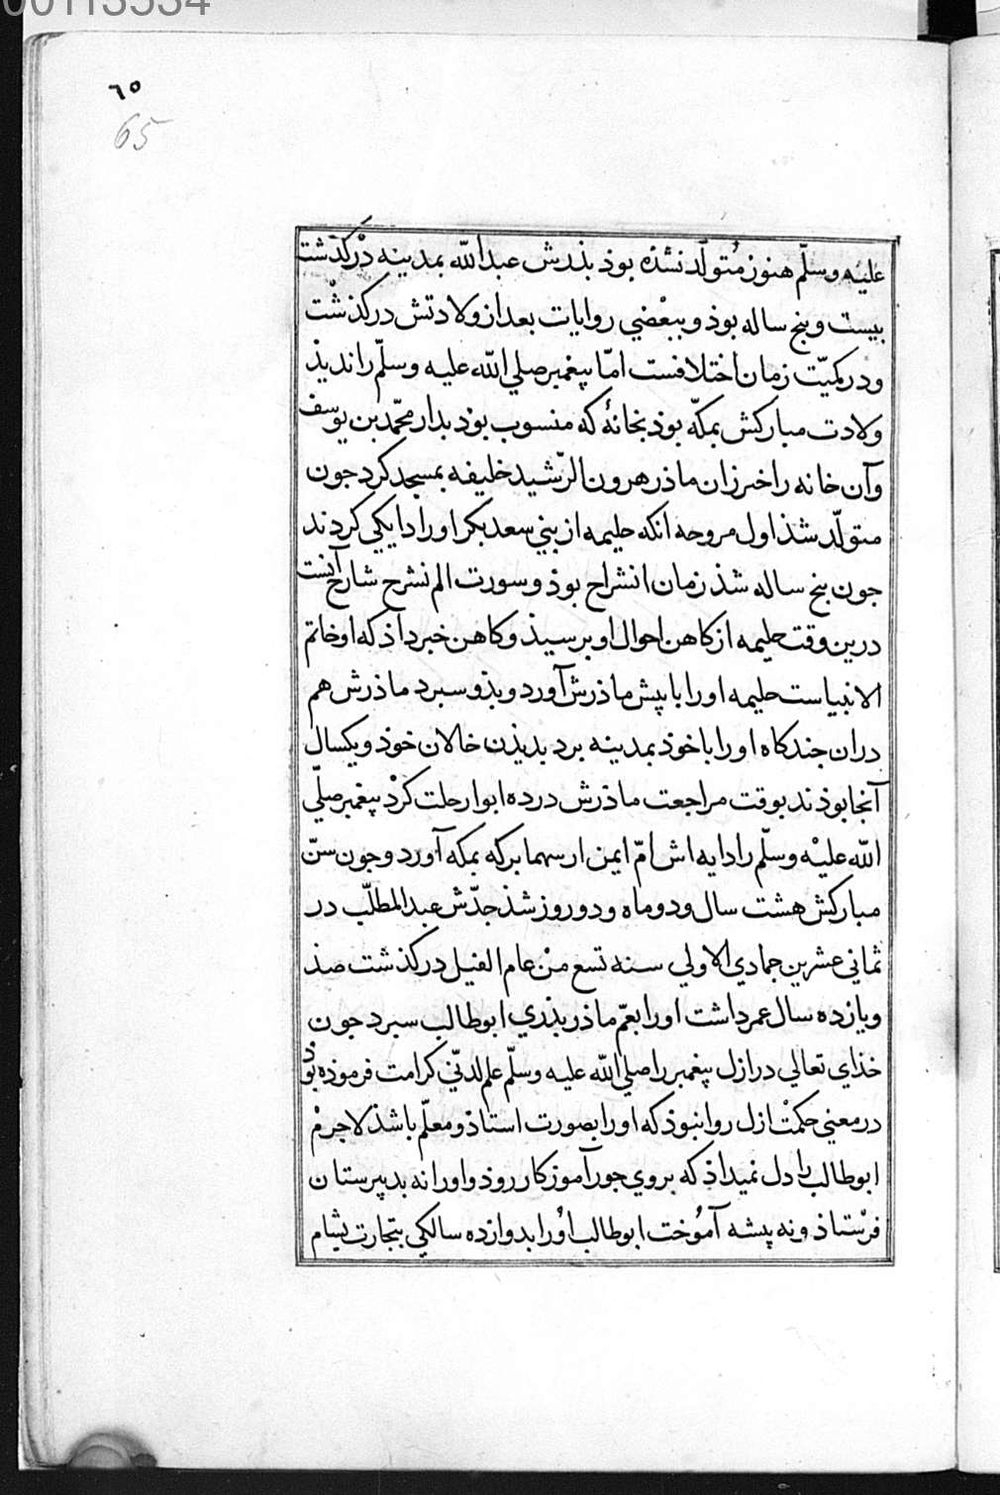 00113534
٦٥
65
عليه وسلّم هنوز مُتولّد نشذه بوذ بذرش عبدالله بمدينه درْكذشت
بيست وبنج ساله بوذ وببعْضي روايات بعد از ولادتش دركذشْت
ودركميّت زمان اختلافست امّا پيغمبر صلي الله عليه وسلّم را نديذ
ولادت مباركش بمكّه بوذ بخانهٔ كه منسوب بوذ بدار محمّد بن يوسف
وآن خانه را خيرزان ماذر هرون الرّشيد خليفه بمسجد كرد جون
متولّد شذ اول مروحه انكه حليمه از بني سعد بكر او را دايكي كردند
جون بنج ساله شذ زمان انشراح بوذ وسورت الم نشرح شارح آنست
درين وقت حليمه از كاهن احوال او برسيذ وكاهن خبر داذ كه او خاتم
الانبياست حليمه او را با پيش ماذرش آورد وبذو سبرد ماذرش هم
دران جند كاه او را با خوذ بمدينه برد بديذن خالان خوذ ويكسال
آنجا بوذند بوقت مراجعت ماذرش در ده ابوا رحلت كرْد پيغمبر صلّي
الله عليْه وسلّم را دايه اش امّ ايمن اسمها بركه بمكه آورد وجون سنّ
مباركش هشت سال ودو ماه ودو روز شذ جدّش عبد المطلّب در
ثماني عشرين جمادي الاولي سنه تسع منْ عام الفيل دركذشت صذ
ويازده سال عمر داشت او را بعمّ ماذر بذري ابوطالب سبرد جون
خذاي تعالي در ازل پيغمبر را صلي الله عليه وسلّم علم لدنّي كرامت فرموذه بوْذ
در معني حكمتْ ازل روا نبوذ كه او را بصورت استاذ ومعلّم باشذ لاجرمْ
ابوطالب را دل نميداذ كه بروي جور آموزكار روذ واو را نه بدبيرستان
فرسْتاذ ونه پيشه آمُوخت ابوطالب اوُرا بدوازده سالكي بتجارت بشام